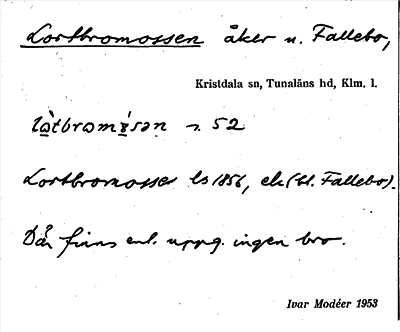 Lortbromossen åker n. Fallebo,
Kristdala sn, Tunaläns hd, Klm. l.
52
Lortbromosse ls 1856, ek (bl. Fallebo).
Där finns enl. uppg. ingen bro.
Ivar Modéer 1953